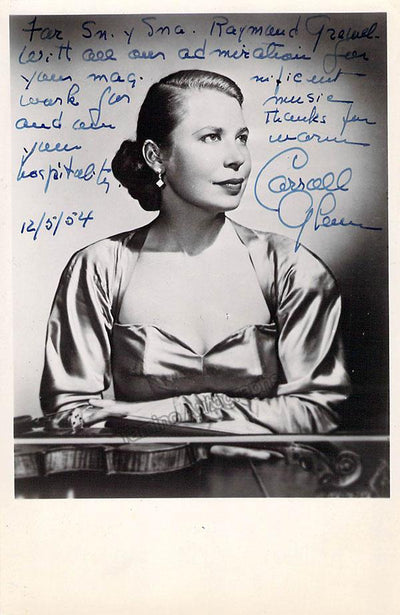 For Sn. y Sna. Raymond
With all our admiration for
your mag. nificient
work for music
and our thanks for
your warm
hospitality.
Carroll
Glenn
12/5/54